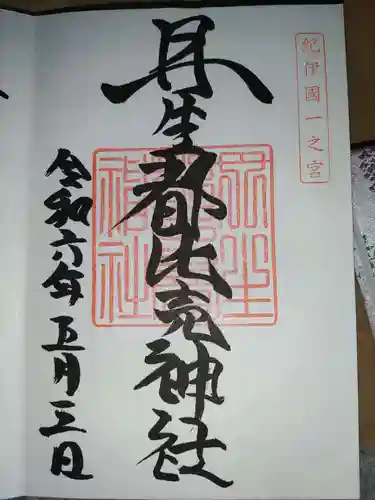 紀伊國一之宮
丹生都比売神社
令和六年五月三日